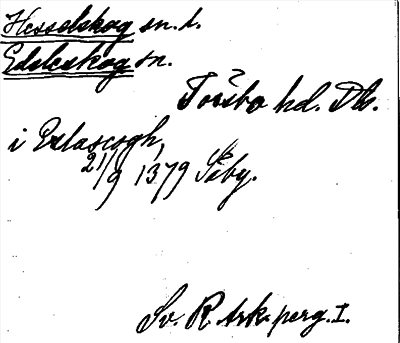 Hesselskog sn. t.
Edsleskog sn.
Tössbo hd. Ds.
i Exlascogh,
21/9 1379 Säby.
Sv. R. Ark. perg. I.